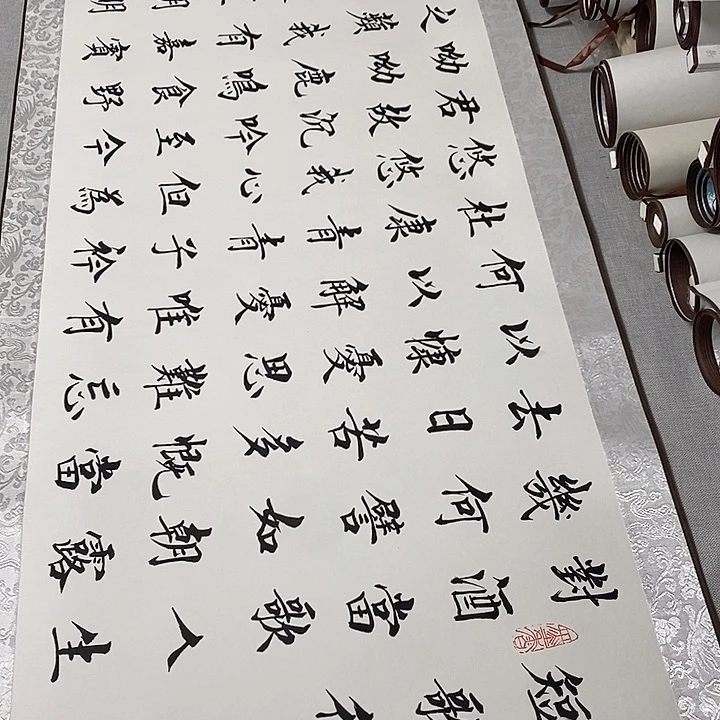 短歌行
對酒當歌人生
幾何譬如朝露
去日苦多慨當
以慷憂思難忘
何以解憂唯有
杜康青青子衿
悠悠我心但為
君故沉吟至今
呦呦鹿鳴食野
之蘋我有嘉賓
明明